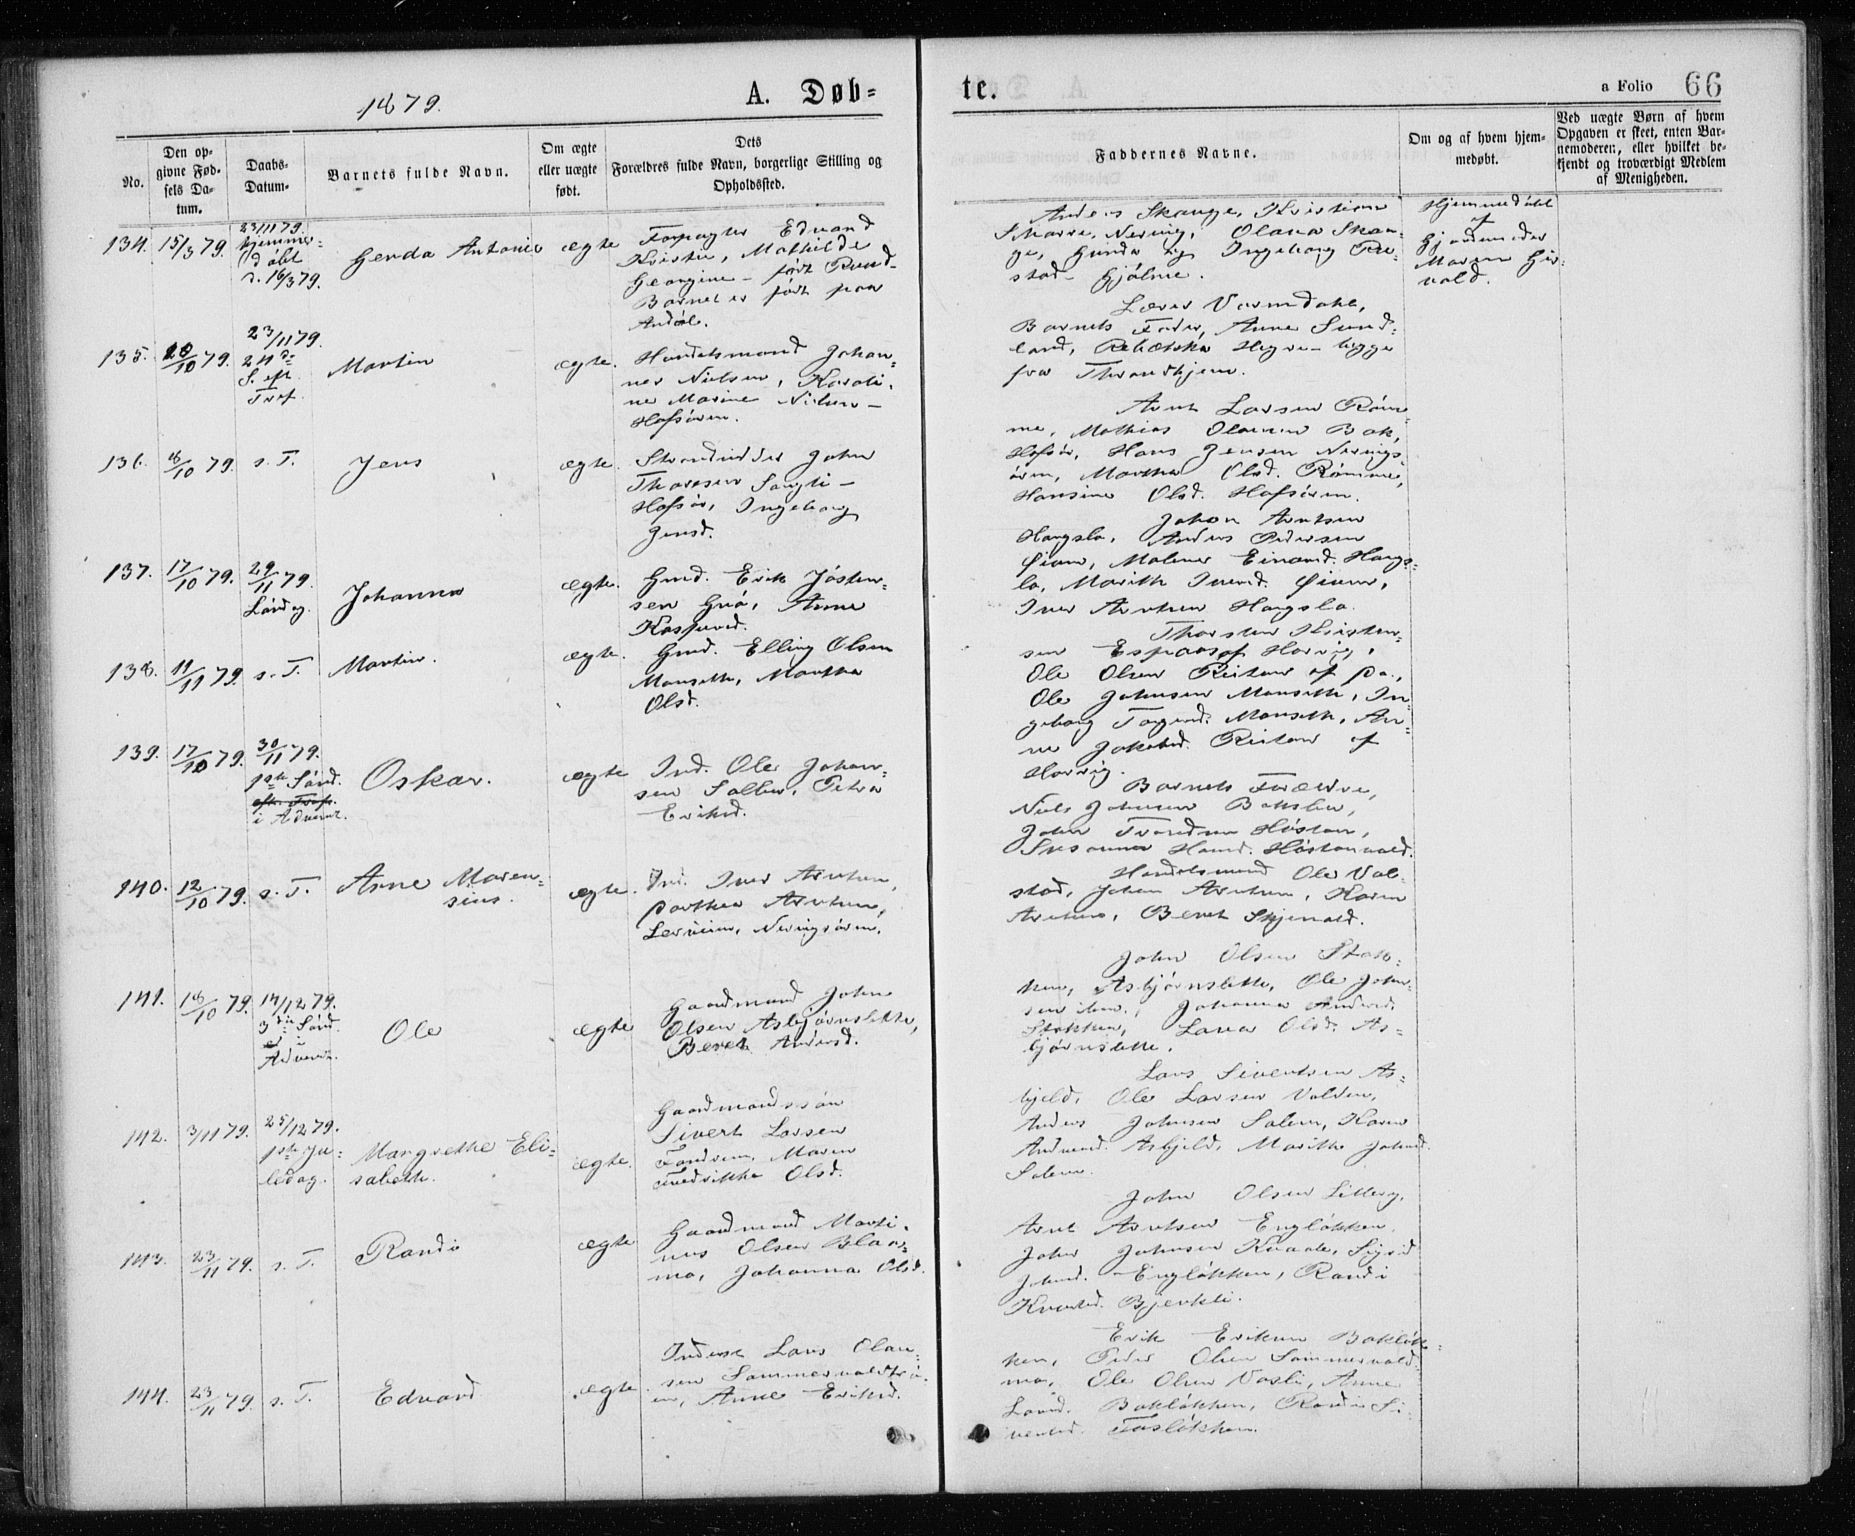 1879.
A. Døb-
te.
a Folio 66
No.
Den op-
givne Fød-
sels Da-
tum.
Daabs-
Datum.
Barnets fulde Navn.
Om ægte
eller uægte
født.
Dets
Forældres fulde Navn, borgerlige Stilling og
Opholdssted.
Faddernes Navne.
Om og af hvem hjem-
medøbt.
Ved uægte Børn af hvem
Opgaven er skeet, enten Bar-
nemoderen, eller hvilket be-
kjendt og troværdigt Medlem
af Menigheden.
134. 15/3 79.
23/11 79.
hjemme-
døbt
d. 16/3 79.
Gerda Antonie
ægte
Forpagter Edvard
Kristie, Mathilde
Georgine - født Rund-
Barnet er født paa
Anders Skauge, Kristian
Olava Skau-
ge, Gunda og Ingeborg Re-
stad - Gjølme.
Hjemmedøbt
af
Gjordemoder
Maren Gis-
vold.
135. 20/10 79.
23/11 79.
24de
S. eft.
Tref.
Martin
ægte.
Handelsmand Johan-
nes Nielsen, Karoli-
ne Marine Nielsen -
Hofsøren.
Lærer Varmdahl,
Barnets Fader, Anne Sund-
land, Rebekka Hegre - begge
fra Throndhjem.
136. 8/10 79. s. T.
Jens
ægte.
Strandsidder John
Thoresen
Hofsør, Ingeborg
Jensd.
Arnt Larsen Røm-
me, Mathias Olausen Bak,
Hofsør, Hans Jensen Nerings-
øren, Martha Olsd. Rømme,
Hansine Olsd. Hofsøren.
137. 17/10 79.
29/11 79.
Lørdag.
Johanna
ægte.
Gmd. Erik Josten-
sen Grø, Anne
Kasperd.
Johan Arntsen
Haugslo, Anders Pedersen
Øien, Malene Einarsd. Haugs-
lo, Marith Iversd. Øien,
Iver Arntsen Haugslo.
138. 11/11 79. s. T.
Martin.
ægte.
Gmd. Elling Olsen
Monseth, Martha
Olsd.
Thorsten Kristen-
sen Espaas af Horrig,
Ole Olsen Ristan af do.,
Ole Johnsen Monseth, In-
geborg Monseth, An-
ne Jakobsd. Ristan af
Horrig.
139. 17/10 79.
30/11 79.
1ste Sønd.
eft. Tref.
i Advent.
Oskar.
ægte
Ind. Ole Johan-
sen Solbu, Petra
Eriksd.
Barnets Forældre,
Niels Johnsen
John Høston,
Susanna Hansd. Høstonvold.
140. 12/10 79. s. T.
Arne Maren-
sius.
ægte.
Ind. Iver Arntsen,
Dorthea Arntsen,
Neringsøren.
Handelsmand Ole Vol-
stad, Johan Arntsen, Karen
Arntsen, Beret Skjenald.
141. 18/10 79.
14/12 79.
3die Sønd.
i
Advent.
Ole
ægte
Gaardmand John
Olsen Asbjørnslette,
Beret Andersd.
John Olsen Stok-
ken, Asbjørnslette, Ole John-
sen ibm., Johanna Andersd.
Stokken, Lava Olsd. As-
bjørnslette.
142. 3/11 79.
25/12 79.
1ste Ju-
ledag.
Margrethe Eli-
sabeth.
ægte.
Gaardmandssøn
Sivert Larsen
Fandrem, Maren
Fredrikke Olsd.
Lars Sivertsen As-
bjeld, Ole Larsen Volden,
Anders Johnsen Solem, Karen
Andersd. Asbjeld, Marith Johnsd.
Solem.
143. 23/11 79. s. T.
Randi
ægte
Gaardmand Marti-
nus Olsen Blaas-
mo, Johanna Olsd.
John Olsen Litleng,
Arnt Arntsen Engløkken,
John Johnsen Sigrid
Johnsd. Engløkken, Randi
Knutsd. Bjerkli.
144. 23/11 79. s. T.
Edvard
ægte.
Inderst Lars Olau-
sen Sommervoldsrø-
en, Anne Eriksd.
Erik Eriksen Bakløk-
ken, Peder Olsen Sommervold-
mo, Ole Olsen Vasli, Anne
Larsd. Bakløkken, Randi Si-
vertsd. Fasløkken.